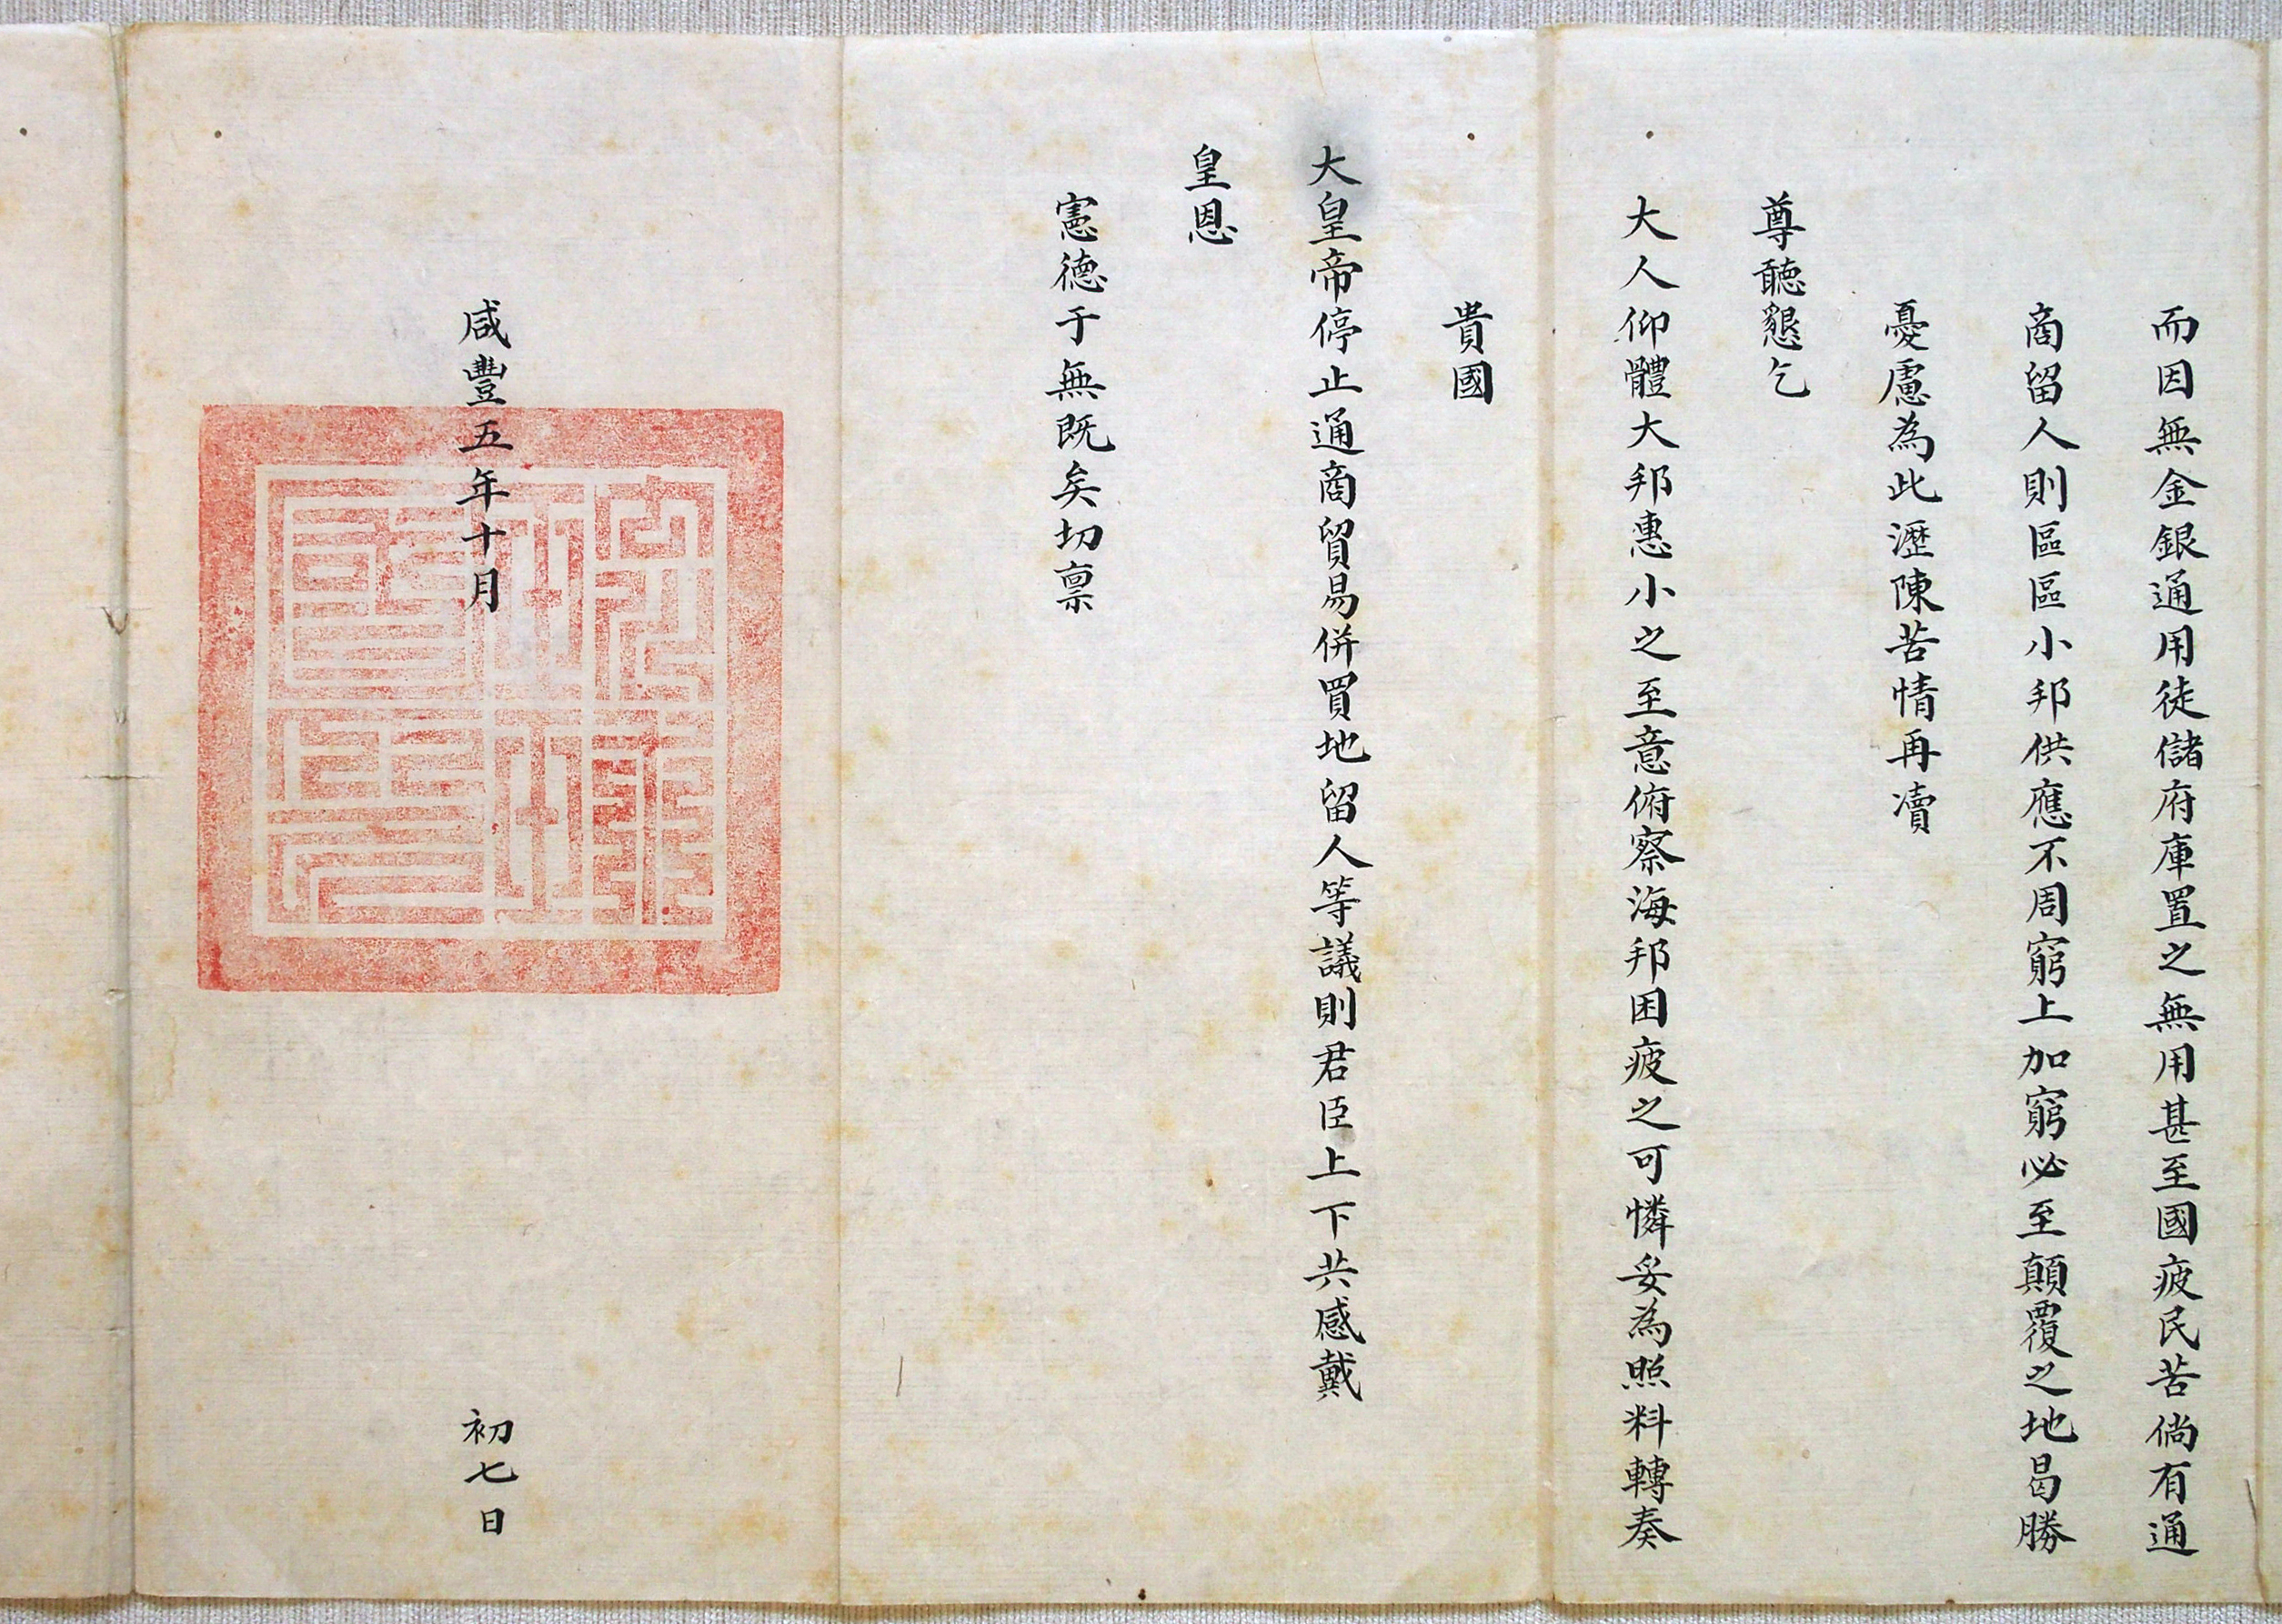 而因無金銀通用徒儲府庫置之無用甚至國疲民苦倘有通
商留人則區區小邦供應不周窮上加窮必至顛覆之地曷勝
憂慮為此瀝陳苦情再凟
尊聽懇乞
大人仰體大邦惠小之至意俯察海邦困疲之可憐妥為照料轉奏
貴國
大皇帝停止通商貿易併買地留人等議則君臣上下共感戴
皇恩
憲德于無既矣切禀
咸豐五年十月
初七日